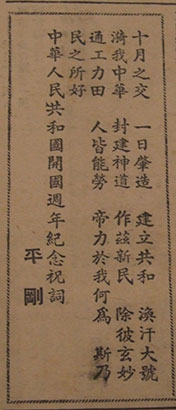 十月之交 一日肇造 建立共和 渙汗大號
漪我中華 封建神道 作茲新民 除彼玄妙
通工力田 人皆能勞 帝力於我何爲 斯乃
民之所好
中華人民共和國開國週年紀念祝詞
平剛